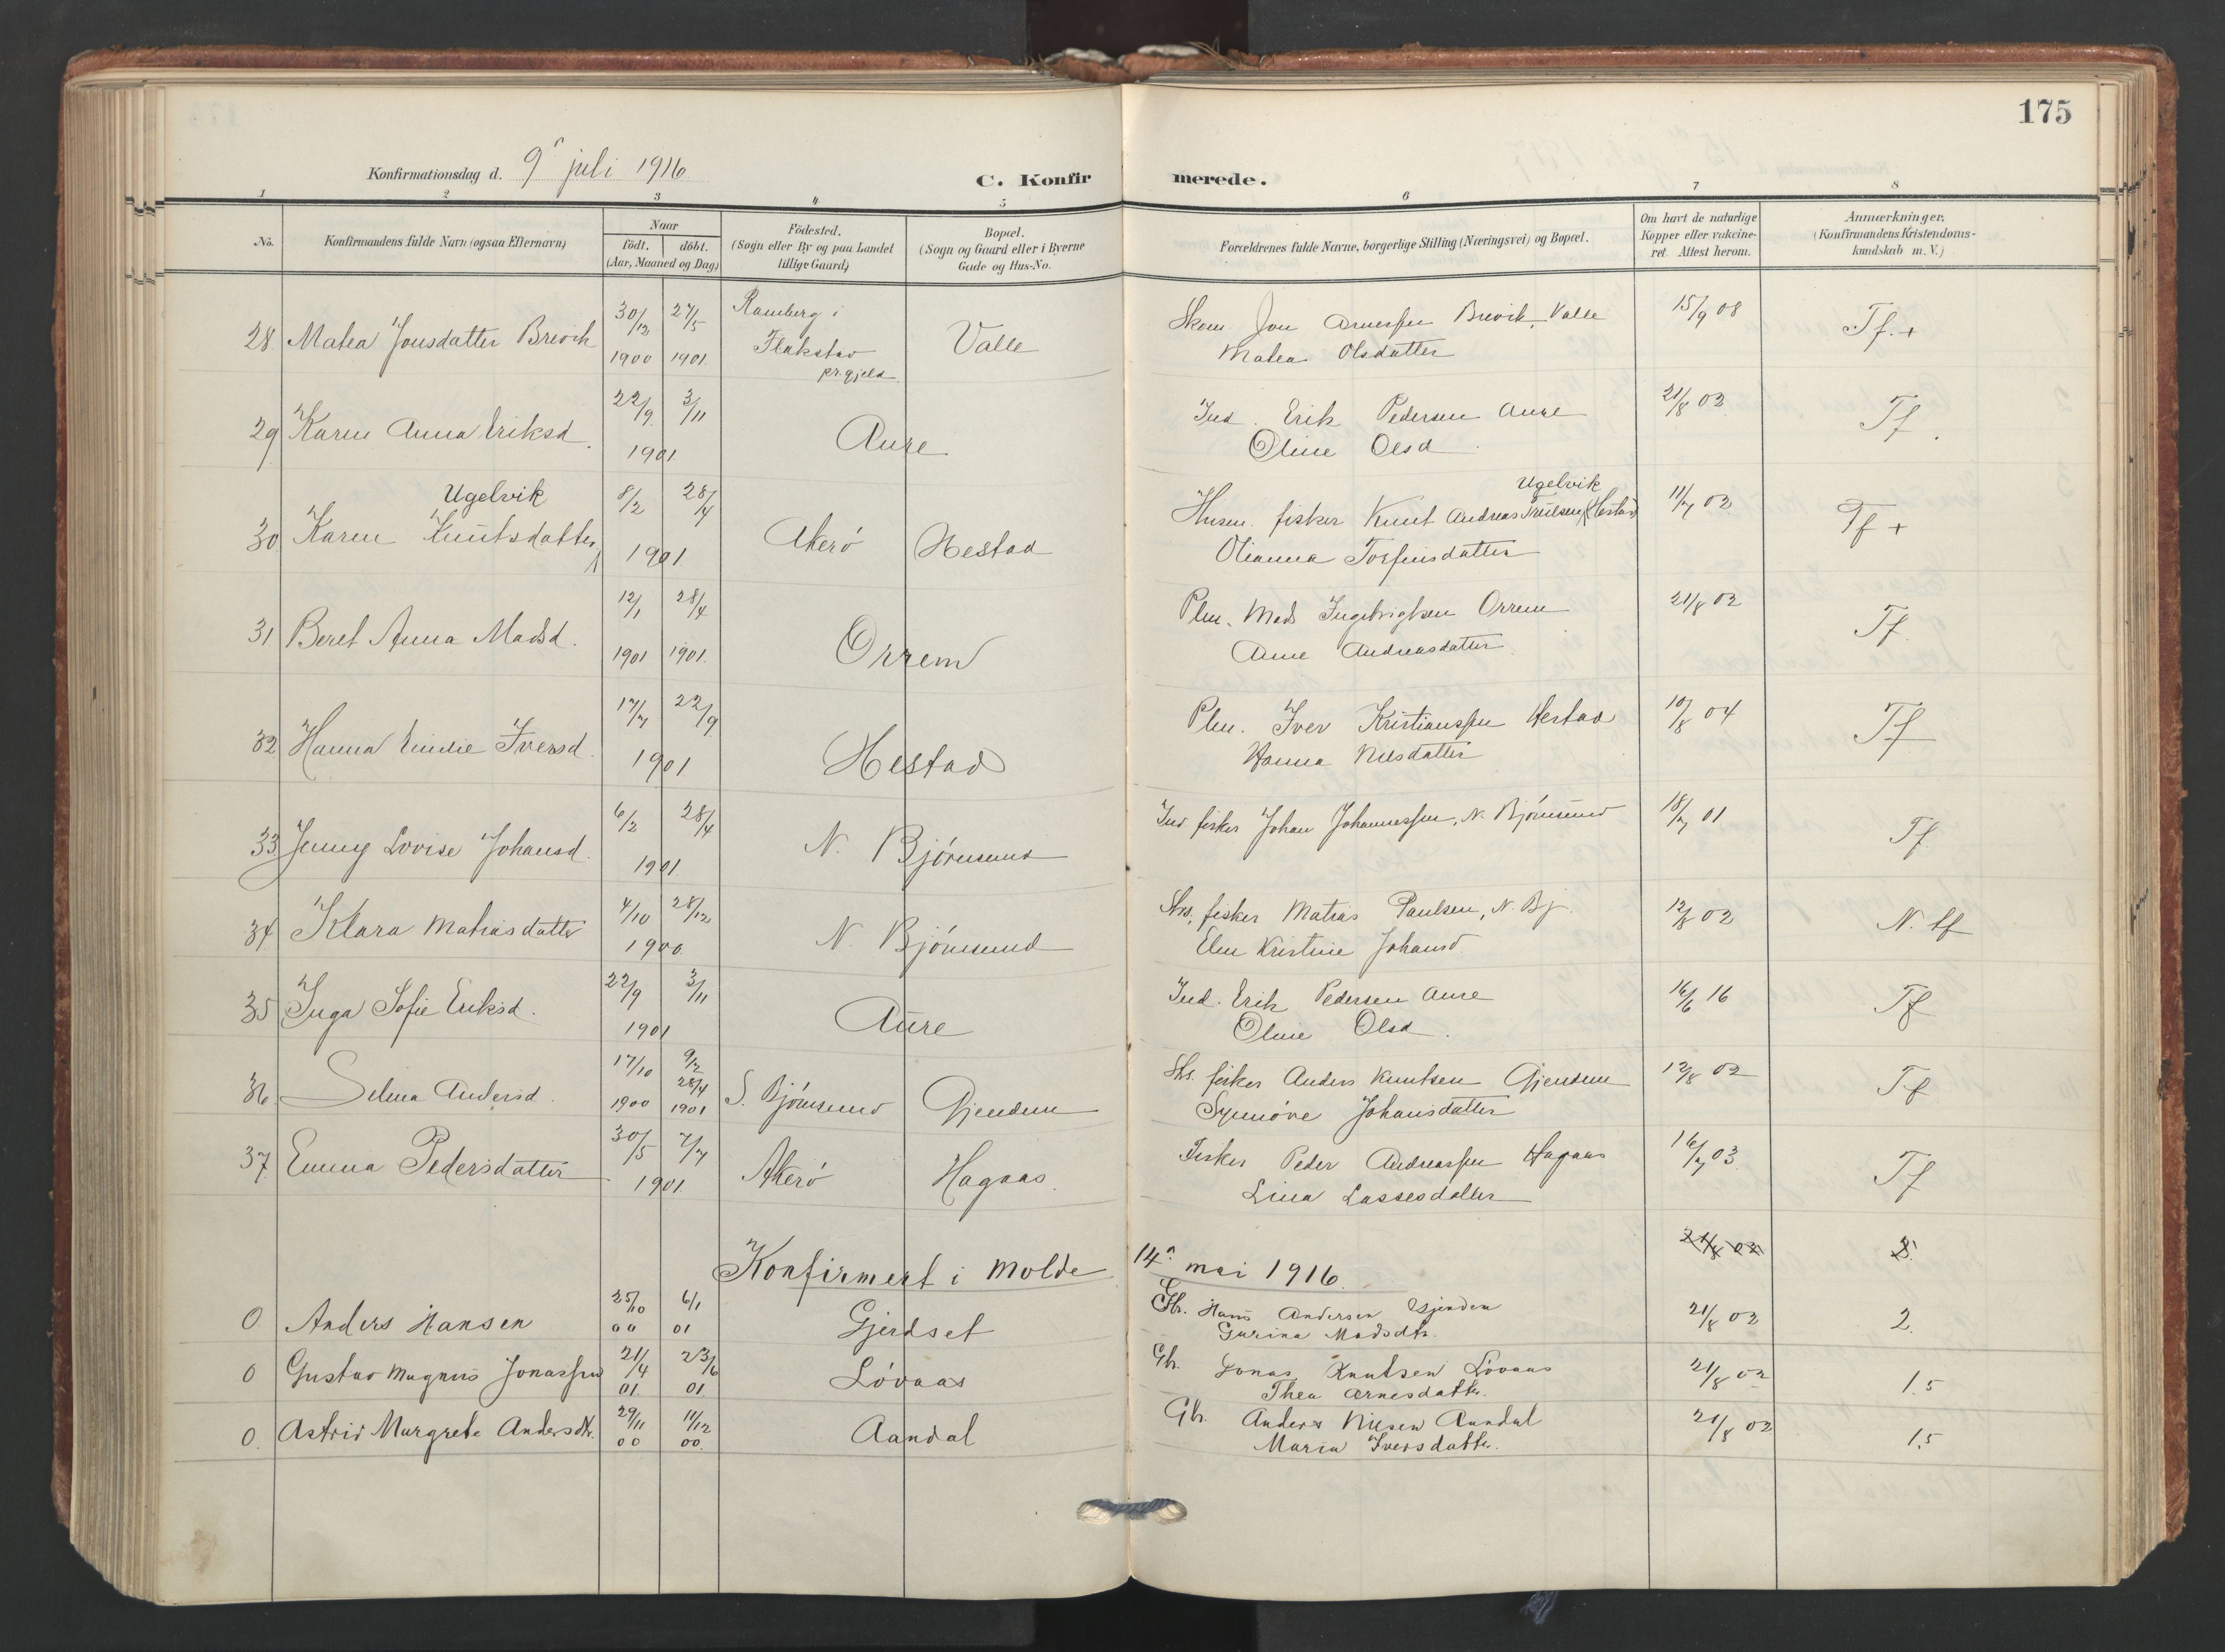 175
Konfirmationsdag d. 9n juli 1916
C. Konfirmerede.
1 2 3 4 5 6 7 8
No.
Konfirmandens fulde Navn (ogsaa Efternavn)
Naar
födt. döbt.
(Aar, Maaned og Dag)
Födested.
(Sogn eller By og paa Landet
tillige Gaard)
Bopæl.
(Sogn og Gaard eller i Byerne
Gade og Hus-No.
Forældrenes fulde Navne, borgerlige Stilling (Næringsvei) og Bopæl.
Om havt de naturlige
Kopper eller vakcine-
ret. Attest herom.
Anmærkninger.
(Konfirmandens Kristendoms-
kundskab m. V.)
28 Matea Jonsdatter Brevik 30/12 1900 27/5 1901. Ramberg i Flakstad pr.gjeld. Valle
Skom. Jon Arnessen Brevik, Valle 15/9 08 Tf. +
Matea Olsdatter
29 Karen Anna Eriksd. 22/9 3/11 1901 Aure
Ind. Erik Pedersen Aure 21/8 02 Tf.
Oline Olsd.
30 Karen Knutsdatter Ugelvik 8/2 28/4 1901 Akerö Hestad
Husm. fisker Knut Andreas Truelsen Ugelvik (Hestad) 11/7 02 Tf +
Olianna Torfinsdatter
31. Beret Anna Madsd. 12/1 1901 28/4 1901. Orrem
Plm. Mads Ingebrigtsen Orrem 21/8 02 Tf.
Anne Andreasdatter.
32 Hanna Emilie Iversd. 17/7 22/9 1901 Hestad
Plm. Iver Kristianssen Hestad 10/8 04 Tf
Hanna Nilsdatter
33 Jenny Lovise Johansd. 6/2 28/4 1901. N. Björnsund
Ind fisker Johan Johannessen, N. Björnsund 18/7 01 Tf
34 Klara Matiasdatter 4/10 28/12 1900. N. Björnsund
Strs. fisker Matias Paulsen, N. Bj. 12/8 02 N. tf
Elen Kristine Johansd.
35 Inga Sofie Eriksd. 22/9 3/11 1901 Aure
Ind. Erik Pedersen Aure 16/6 16 Tf
Oline Olsd.
36. Selma Andersd. 17/10 1900 9/2 28/4 1901 S. Björnsund Gjendem
Strs. fisker Anders Knutsen Gjendem 12/8 02 Tf
Synnöve Johansdatter
37. Emma Pedersdatter 30/5 7/7 1901. Akerö Hagaas.
Fisker Peder Andreassen Hagaas 16/7 03. Tf
Lina Lassesdatter
21/8 02 2.
Konfirmert i Molde 14n mai 1916.
0 Anders Hansen 25/10 00 6/1 01 Gjerdset
Gbr. Hans Andersen Gjendem 21/8 02 2.
Gurina Madsdtr.
0 Gustav Magnus Jonassen 21/4 01. 23/6 01. Lövaas
Gbr. Jonas Knutsen Lövaas 21/8 02 1.5
Thea Arnesdatter.
0. Astrid Margrete Andersdtr. 29/11 00 11/12 00. Aandal
Gbr. Anders Nilsen Aandal 21/8 02 1.5
Maria Iversdatter.